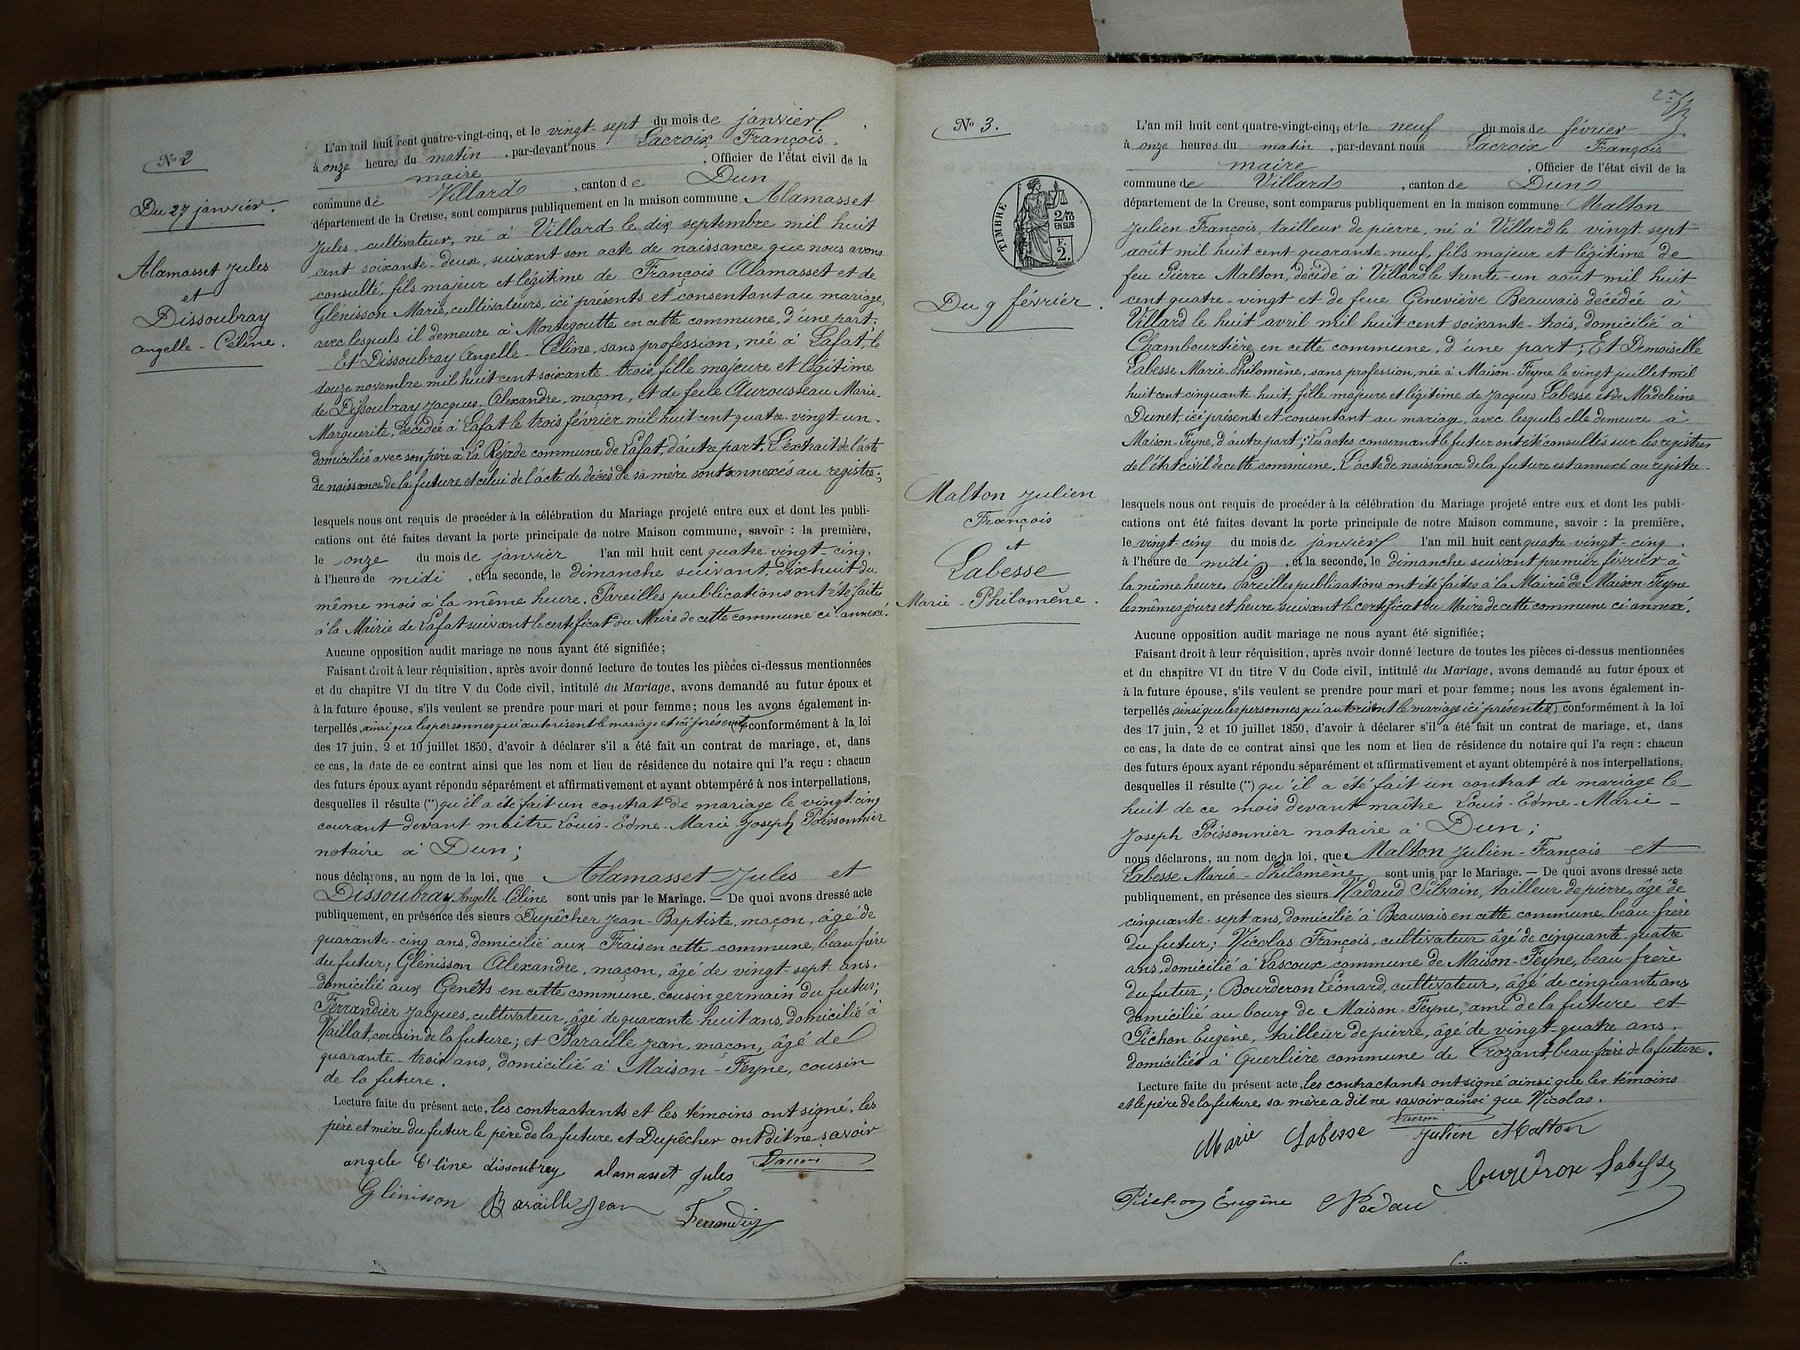 Nº 2
Du 27 janvier.
Alamasset Jules
et
Dissoubray
Angelle-Céline.
L'an mil huit cent quatre-vingt-cinq, et le vingt-sept du mois de janvier
à onze heures du matin, par-devant nous Lacroix François.
maire, Officier de l'état civil de la
commune de Villard, canton de Dun
département de la Creuse, sont comparus publiquement en la maison commune Alamasset
Jules, cultivateur, né à Villard le dix septembre mil huit
cent soixante-deux, suivant son acte de naissance que nous avons
consulté, fils majeur et légitime de François Alamasset et de
Glénisson Marie, cultivateurs, ici présents et consentant au mariage,
avec lesquels il demeure à Montegoutte en cette commune, d'une part;
Et Dissoubray Angelle-Céline, sans profession, née à Lafat le
douze novembre mil huit cent soixante-trois, fille majeure et légitime
de Dissoubray Jacques-Alexandre, maçon, et de feue Aurousseau Marie-
Marguerite, décédée à Lafat le trois février mil huit cent quatre-vingt-un.
domicilié avec son père à La Réjade commune de Lafat, d'autre part. L'extrait de l'acte
de naissance de la future et celui de l'acte de décès de sa mère sont annexés au registre;
lesquels nous ont requis de procéder à la célébration du Mariage projeté entre eux et dont les publi-
cations ont été faites devant la porte principale de notre Maison commune, savoir : la première,
le onze du mois de janvier l'an mil huit cent quatre-vingt-cinq,
à l'heure de midi, et la seconde, le dimanche suivant, dix-huit du
même mois à la même heure. Pareilles publications ont été faites
à la Mairie de Lafat suivant le certificat du Maire de cette commune ci-annexé.
Aucune opposition audit mariage ne nous ayant été signifiée;
Faisant droit à leur réquisition, après avoir donné lecture de toutes les pièces ci-dessus mentionnées
et du chapitre VI du titre V du Code civil, intitulé du Mariage, avons demandé au futur époux et
à la future épouse, s'ils veulent se prendre pour mari et pour femme; nous les avons également in-
terpellés, ainsi que les personnes qui autorisent le mariage et ici présentes conformément à la loi
des 17 juin, 2 et 10 juillet 1850, d'avoir à déclarer s'il a été fait un contrat de mariage, et, dans
ce cas, la date de ce contrat ainsi que les nom et lieu de résidence du notaire qui l'a reçu : chacun
des futurs époux ayant répondu séparément et affirmativement et ayant obtempéré à nos interpellations,
desquelles il résulte (**) qu'il a été fait un contrat de mariage le vingt-cinq
courant devant maître Louis-Edme-Marie-Joseph Poissonnier
notaire à Dun;
nous déclarons, au nom de la loi, que Alamasset Jules et
Dissoubray Angelle Céline sont unis par le Mariage. — De quoi avons dressé acte
publiquement, en présence des sieurs Dupêcher Jean-Baptiste, maçon, âgé de
quarante-cinq ans, domicilié aux Frais en cette commune, beau-frère
du futur; Glénisson Alexandre, maçon, âgé de vingt-sept ans.
domicilié aux Genêts en cette commune, cousin germain du futur;
Ferrandier Jacques, cultivateur, âgé de quarante-huit ans, domicilié à
Naillat, cousin de la future; et Baraille Jean, maçon, âgé de
quarante-trois ans, domicilié à Maison-Feyne, cousin
de la future.
Lecture faite du présent acte, les contractants et les témoins ont signé, les
père et mère du futur le père de la future et Dupêcher ont dit ne savoir
angele C'line dissoubrey alamasset Jules Lacroix
Glénisson Baraille Jean Ferrandier
Nº 3.
TIMBRE
2/10
EN SUS
F.
2.
Du 9 février.
Malton Julien
François
et
Labesse
Marie-Philomène.
L'an mil huit cent quatre-vingt-cinq, et le neuf du mois de février
à onze heures du matin, par-devant nous Lacroix François
maire, Officier de l'état civil de la
commune de Villard, canton de Dun
département de la Creuse, sont comparus publiquement en la maison commune Malton
Julien François, tailleur de pierre, né à Villard le vingt sept
août mil huit cent quarante-neuf, fils majeur et légitime de
feu Pierre Malton, décédé à Villard le trente-un août mil huit
cent quatre-vingt et de feue Geneviève Beauvais décédée à
Villard le huit avril mil huit cent soixante-trois, domicilié à
Chambourtière en cette commune, d'une part; Et Demoiselle
Labesse Marie-Philomène, sans profession, née à Maison-Feyne le vingt juillet mil
huit cent cinquante-huit, fille majeure et légitime de Jacques Labesse et de Madeleine
Dunet, ici présents et consentant au mariage, avec lesquels elle demeure à
Maison-Feyne, d'autre part; Les actes concernant le futur ont été consultés sur les registres
de l'état civil de cette commune, L'acte de naissance de la future est annexé au registre.
lesquels nous ont requis de procéder à la célébration du Mariage projeté entre eux et dont les publi-
cations ont été faites devant la porte principale de notre Maison commune, savoir : la première,
le vingt-cinq du mois de janvier l'an mil huit cent quatre-vingt-cinq,
à l'heure de midi, et la seconde, le dimanche suivant premier février à
la même heure. Pareilles publications ont été faites à la Mairie de Maison-Feyne
les mêmes jours et heure suivant le certificat du Maire de cette commune ci-annexé.
Aucune opposition audit mariage ne nous ayant été signifiée;
Faisant droit à leur réquisition, après avoir donné lecture de toutes les pièces ci-dessus mentionnées
et du chapitre VI du titre V du Code civil, intitulé du Mariage, avons demandé au futur époux et
à la future épouse, s'ils veulent se prendre pour mari et pour femme; nous les avons également in-
terpellés, ainsi que les personnes qui autorisent le mariage ici présentes) conformément à la loi
des 17 juin, 2 et 10 juillet 1850, d'avoir à déclarer s'il a été fait un contrat de mariage, et, dans
ce cas, la date de ce contrat ainsi que les nom et lieu de résidence du notaire qui l'a reçu : chacun
des futurs époux ayant répondu séparément et affirmativement et ayant obtempéré à nos interpellations,
desquelles il résulte (**) qu'il a été fait un contrat de mariage le
huit de ce mois devant maître Louis-Edme-Marie-
Joseph Poissonnier notaire à Dun;
nous déclarons, au nom de la loi, que Malton Julien-François et
Labesse Marie-Philomène sont unis par le Mariage. — De quoi avons dressé acte
publiquement, en présence des sieurs Nadaud Silvain, tailleur de pierre, âgé de
cinquante-sept ans, domicilié à Beauvais en cette commune, beau-frère
du futur; Nicolas François, cultivateur âgé de cinquante-quatre
ans, domicilié à Lascoux commune de Maison-Feyne, beau-frère
du futur; Bourderon Léonard, cultivateur, âgé de cinquante ans
domicilié au bourg de Maison-Feyne, ami de la future et
Pichon Eugène, tailleur de pierre, âgé de vingt-quatre ans.
domicilié à Guerlière commune de Crozant, beau-frère de la future.
Lecture faite du présent acte, les contractants ont signé ainsi que les témoins
et le père de la future, sa mère a dit ne savoir ainsi que Nicolas.
Lacroix
Marie Labesse Julien Malton
Labesse
Pichon Eugène Nadau